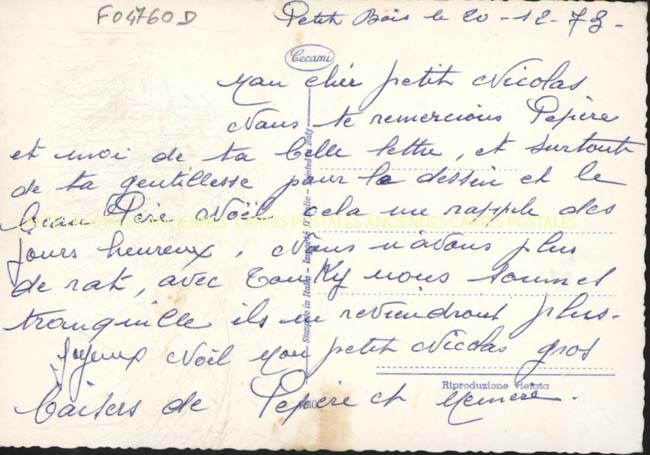 F04760D
Petit Bois le 20-12-78-
Cecami
Mon cher petit Nicolas
Nous te remercions Pépère
et moi de ta belle lettre, et surtout
de ta gentillesse pour le dessin et le
beau Père Noël cela me rappele des
CARTES POSTALES ANCIENNES CARTES POSTALES
jours heureux, Nous n'avons plus
de rat, avec nous sommes
tranquille ils ne reviendront plus-
Joyeux Noël mon petit Nicolas gros
Riproduzione vietata
baisers de Pépère et Mémère.